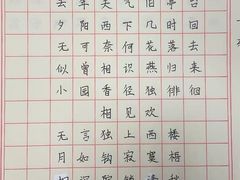 去年天气旧亭台
夕阳西下几时回
无可奈何花落去
似曾相识燕归来
小园香径独徘徊
相见欢
无言独上西楼
月如钩寂寞梧